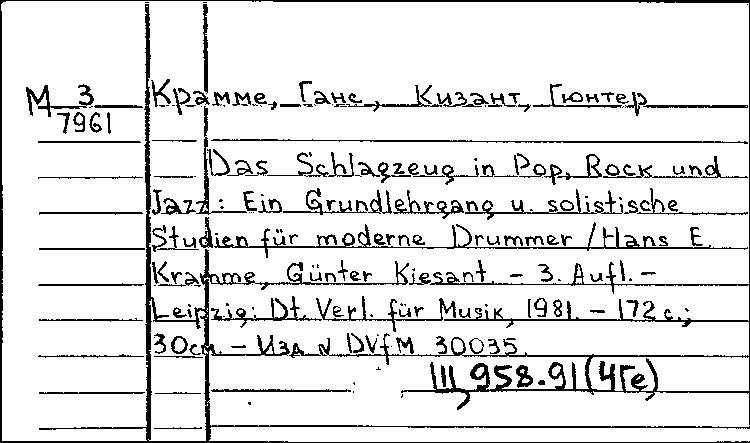 М 3 Крамме, Ганс, Кизант, Гюнтер
7961
Das Schlagzeug in Pop, Rock und
Jazz: Ein Grundlehrgang u. solistische
Studien für moderne Drummer / Hans E.
Kramme, Günter Kiesant. - 3. Aufl. -
Leipzig: Dt. Verl. für Musik, 1981. - 172 с.;
30см. - Изд N DVfM 30035.
Щ958.91(4Ге)